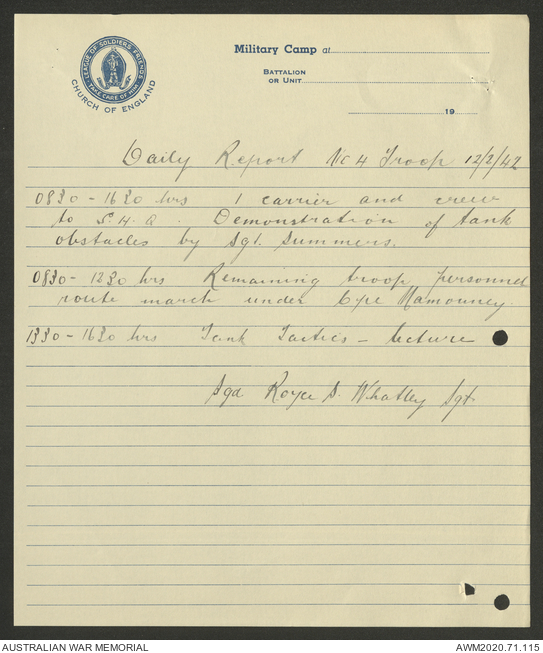 LEAGUE OF SOLDIERS FRIENDS
TAKE CARE OF HIM
CHURCH OF ENGLAND
Military Camp at
BATTALION
OR UNIT
19
Daily Report No 4 Troop 12/2/42
0830 - 1630 hrs 1 carrier and crew
to S.H.Q. Demonstration of tank
obstacles by Sgt. Summers.
0830 - 1230 hrs Remaining troop personnel
route march under Cpl
1330 - 1630 hrs Tank Tactics - lecture
Sgd Royce S. Whatley Sgt.
AUSTRALIAN WAR MEMORIAL
AWM2020.71.115